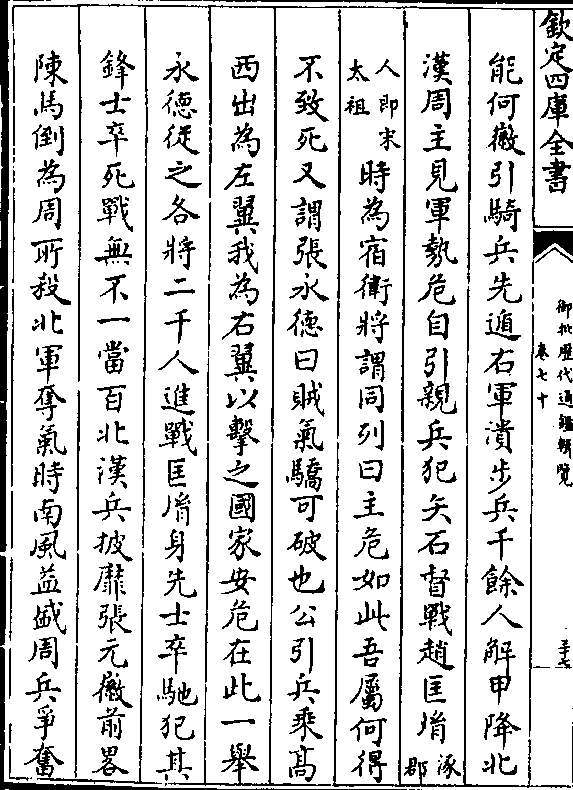 欽定四庫全書
御批歷代通鑑輯覽
卷七十
能何徽引騎兵先遁右軍潰步兵千餘人解甲降北
漢周主見軍勢危自引親兵犯矢石督戰趙匡𦙍涿郡
人即宋太祖時為宿衛將謂同列曰主危如此吾屬何得
不致死又謂張永德曰賊氣驕可破也公引兵乘髙
西出為左翼我為右翼以擊之國家安危在此一舉
永德從之各將二千人進戰匡𦙍身先士卒馳犯其
鋒士卒死戰無不一當百北漢兵披靡張元徽前畧
陳馬倒為周所殺北軍奪氣時南風益盛周兵爭奮